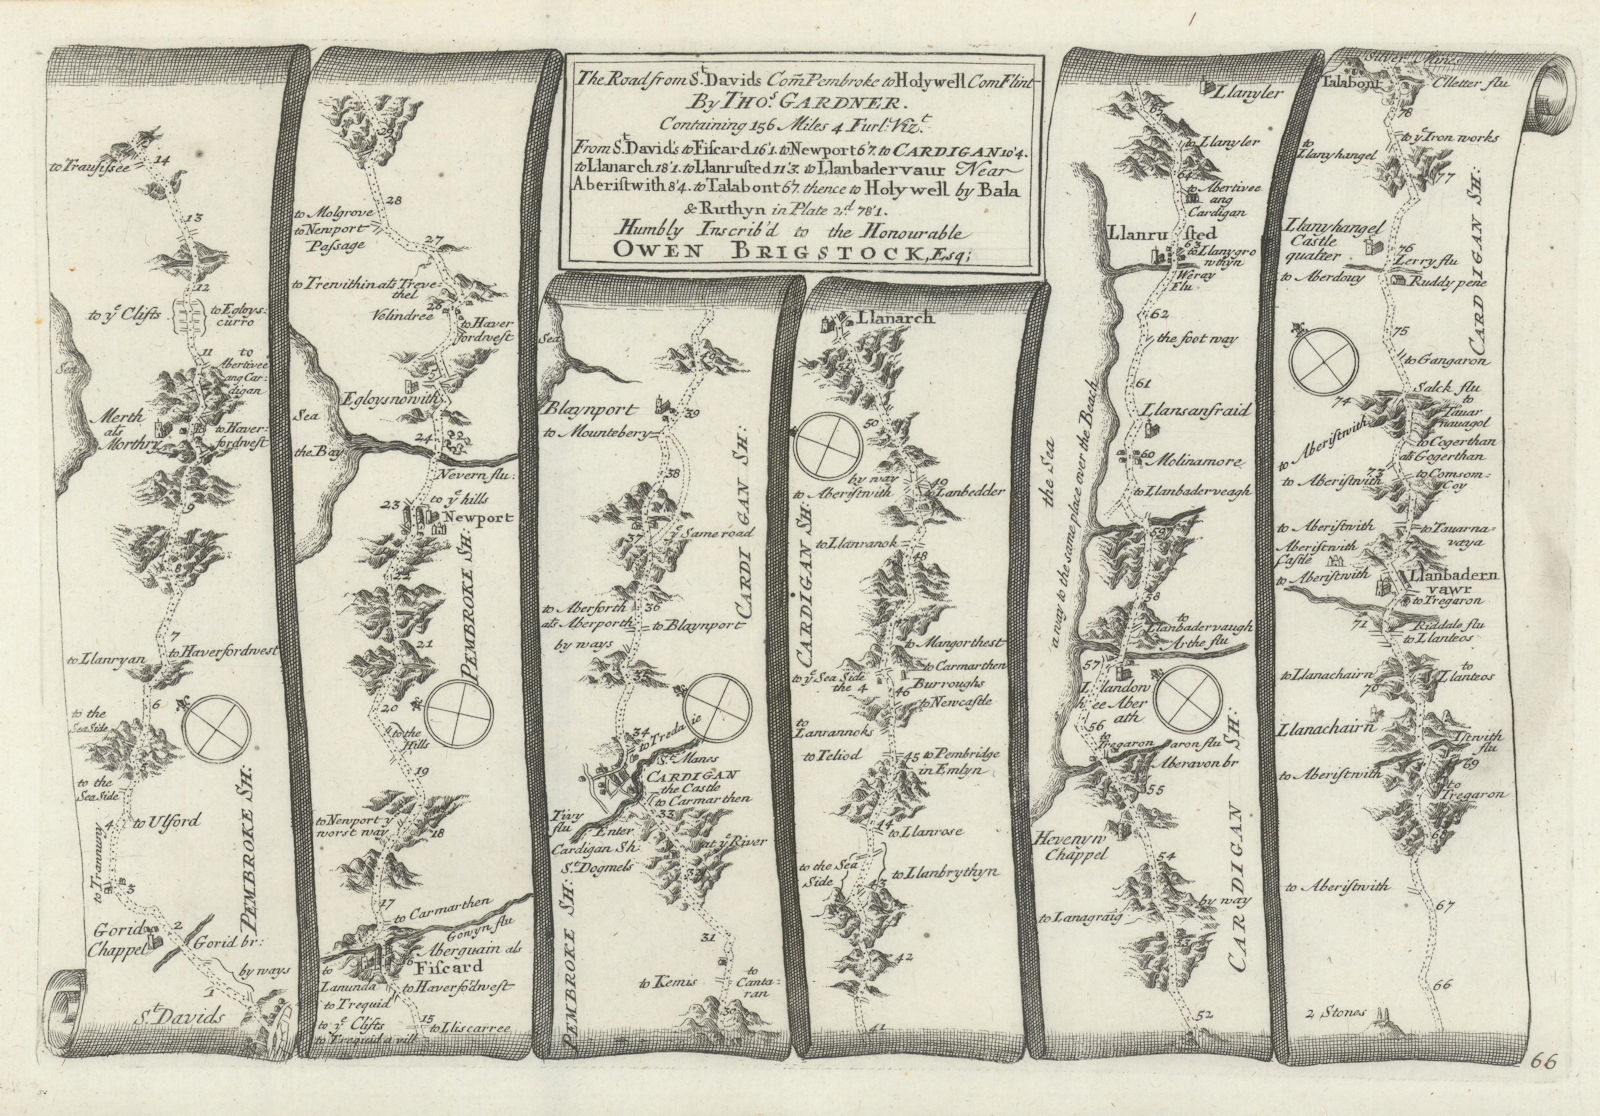 The Road from St. Davids Com Pembroke to Holywell Com Flint
By THOs. GARDNER.
Containing 156 Miles 4 Furl: Vizt.
From St. David's to Fiscard 16'1. to Newport 6'7. to CARDIGAN 10'4.
to Llanarch 18'1. to Llanrusted 11'3. to Llanbadervaur Near
Aberistwith 8'4. to Talabont 6'7. thence to Holywell by Bala
& Ruthyn in Plate 2d. 78'1.
Humbly Inscrib'd to the Honourable
OWEN BRIGSTOCKE, Esq;
to Traussee
14
13
12
to ye Clifts
to Egloys=
curro
11
to
Abertivee
ang Car=
digan
Sea
Merth
als
Morthry
to Haver=
fordwest
9
8
7
to Haverfordwest
to Llanryan
6
to the
Sea Side
to the
Sea Side
4
to Ulford
3
2
Gorid
Chappel
Gorid br:
by ways
1
St. Davids
PEMBROKE SH:
29
28
to Molgrove
to Newport
Passage
27
to Trewithin als Treve=
thel
26
Velindree
to Haver
fordwest
25
Egloysnowith
Sea
the Bay
24
Nevern flu:
23
to ye hills
Newport
22
PEMBROKE SH:
21
20
to the
Hills
19
to Newport ye
worst way
18
17
to Carmarthen
Gowyn flu
Aberguain als
Fiscard
to
Lanunda
to Haverfordwest
to Trequid
to ye Clifts
to Trequid a vill
15
to Lliscarree
Sea
40
Blaynport
39
to Mountebery
38
CARDIGAN SH:
37
ye Same road
to Aberforth
als Aberporth
36
to Blaynport
by ways
34
to Tredacie
St. Manes
CARDIGAN
the Castle
to Carmarthen
Tivy
flu
Enter
Cardigan Sh:
St. Dogmels
33
at ye River
32
31
to Kemis
to
Canta=
ran
30
PEMBROKE SH:
Llanarch
51
50
by way
to Aberistwith
49
Lanbedder
to Llanranok
48
CARDIGAN SH:
to Mangorthest
to Carmarthen
to ye Sea Side
the 4
Burroughs
46
to Newcastle
to
Lanrannoks
to Teliod
45
to Pembridge
in Emlyn
44
to Llanrose
to the Sea
Side
to Llanbrythyn
43
42
41
Llanyler
65
to Llanyler
64
to Abertivee
ang
Cardigan
Llanrusted
63
to Llanygro
nthyn
Weray
Flu
62
the foot way
61
Llansanfraid
60
Molinamore
the Sea
a way to the same place over the Beach
to Llanbaderveagh
59
58
to
Llanbadervaugh
Arthe flu
57
Llandow
ee Aber
ath
56
to
Tregaron
aron flu
Aberavon br
55
Hevenyn
Chappel
54
by way
to Lanagraig
53
CARDIGAN SH:
52
Silver Mines
Talabont
Clletter flu
78
to ye Iron works
to
Llanyhangel
77
CARDIGAN SH:
Llanyhangel
Castle
qualter
76
Lerry flu
to Aberdovy
Ruddy pene
75
to Gangaron
Salck flu
74
to
Tauar
nauagol
to Aberistwith
to Cogerthan
als Gogerthan
73
to Aberistwith
to Comsom=
Coy
to Aberistwith
to Tauarna=
vaya
Aberistwith
Castle
to Aberistwith
Llanbadern
vawr
to Tregaron
71
Riddale flu
to Llanteos
to Llanachairn
70
to
Llanteos
Llanachairn
Istwith
flu
69
to Aberistwith
to
Tregaron
68
to Aberistwith
67
66
2 Stones
66